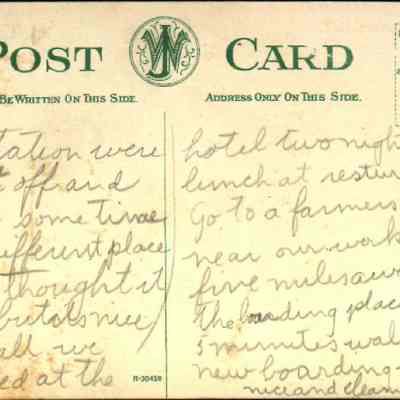 POST CARD
BE WRITTEN ON THIS SIDE.
ADDRESS ONLY ON THIS SIDE.
tation were
off and
some time
ifferent place
thought it
but als nice
all we
ed at the
R-30459
hotel two nigh
lunch at restur
Go to a farmers
near our work
five miles awa
The boarding place
5 minutes wal
new boarding-
nice and clean